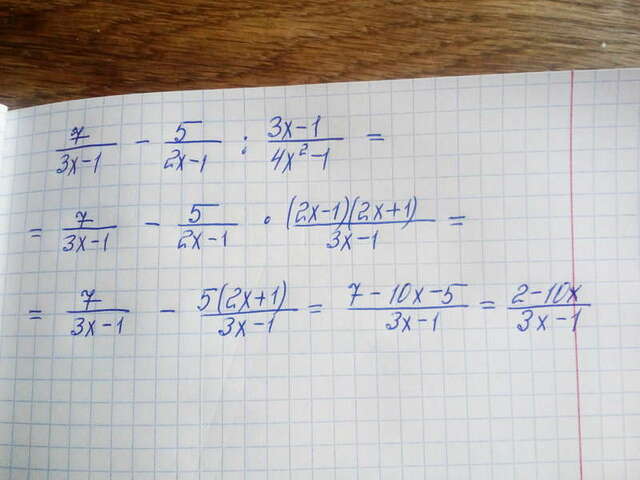 7/(3x-1) - 5/(2x-1) : (3x-1)/(4x²-1) =
= 7/(3x-1) - 5/(2x-1) · (2x-1)(2x+1)/(3x-1) =
= 7/(3x-1) - 5(2x+1)/(3x-1) = (7-10x-5)/(3x-1) = (2-10x)/(3x-1)